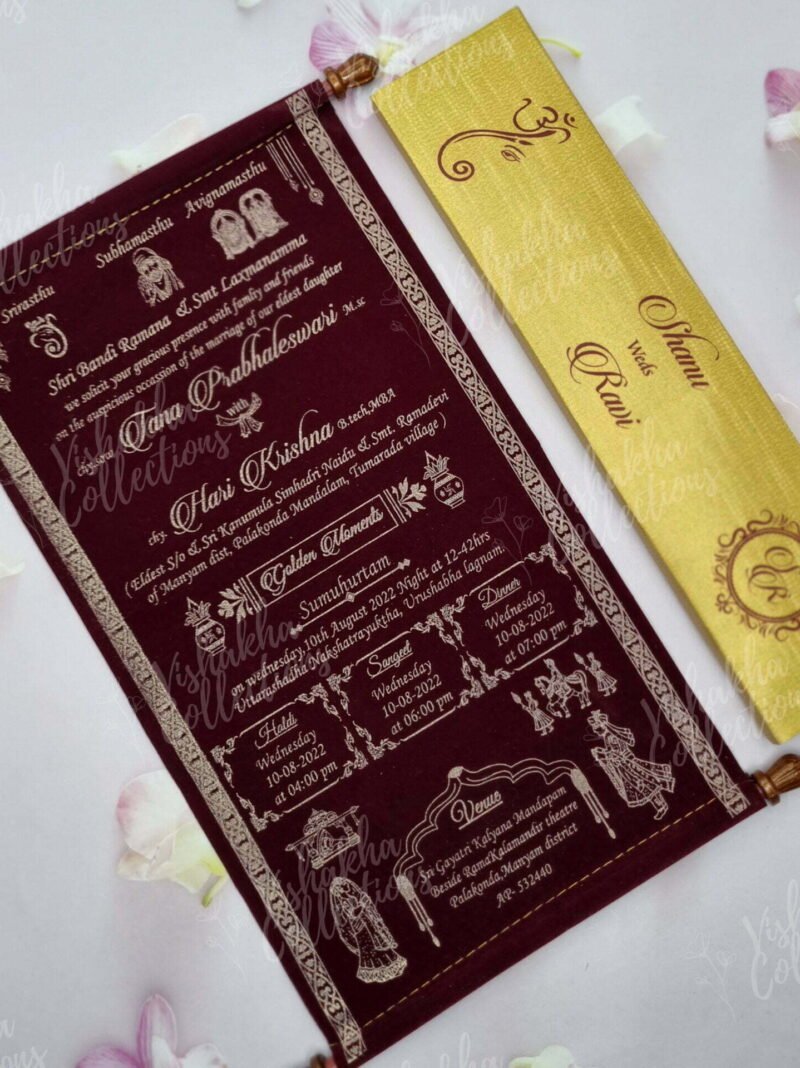 Srirasthu
Subhamasthu
Avignamasthu
Shri Bandi Ramana & Smt Laxmanamma
we solicit your gracious presence with family and friends
on the auspicious occassion of the marriage of our eldest daughter
chy.sow Tana Prabhaleswari M.sc
with
chy. Hari Krishna B.tech,MBA
(Eldest S/o & Sri Kanumula Simhadri Naidu & Smt. Ramadevi
of Manyam dist, Palakonda Mandalam, Tumarada village)
Golden Moments
Sumuhurtam
on wednesday, 10th August 2022 Night at 12-42hrs
Uttarashadha Nakshatrayuktha, Urushabha lagnam.
Haldi
Wednesday
10-08-2022
at 04:00 pm
Sangeet
Wednesday
10-08-2022
at 06:00 pm
Dinner
Wednesday
10-08-2022
at 07:00 pm
Venue
Sri Gayatri Kalyana Mandapam
Beside RamaKalamandir theatre
Palakonda,Manyam district
AP- 532440
Shanu
Weds
Ravi
S
R
Vishakha
Collections